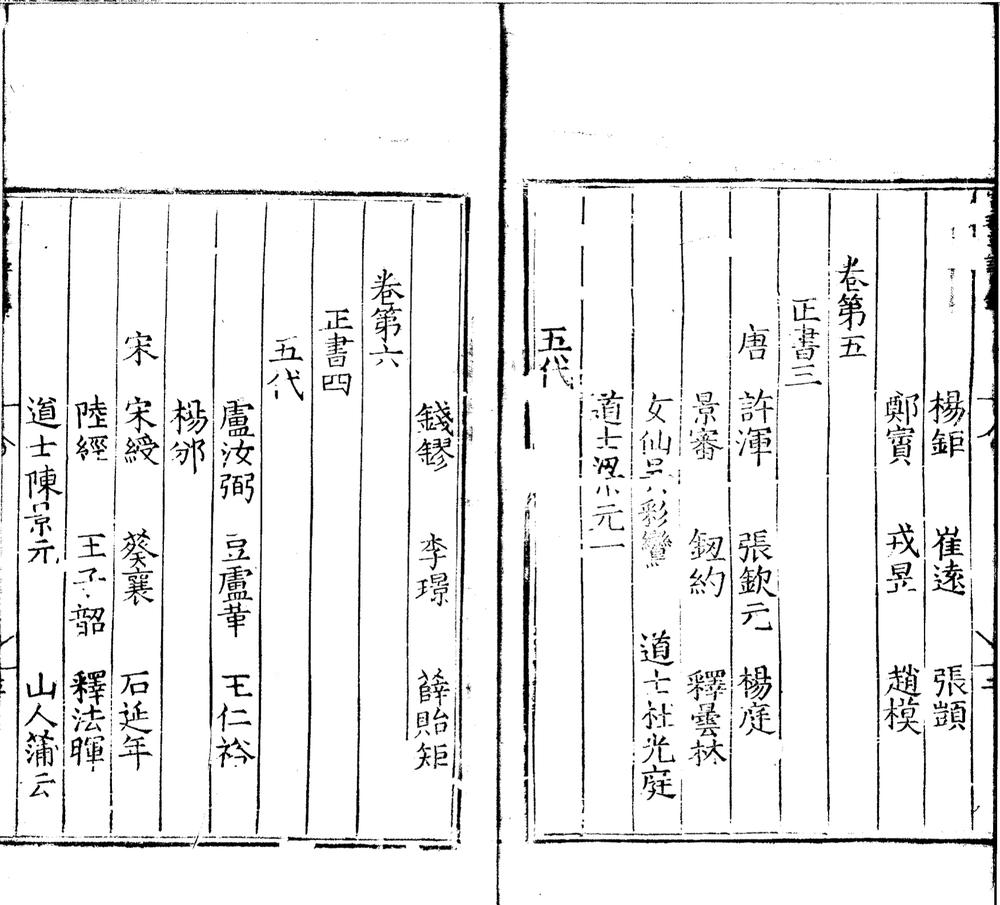 楊鉅 崔遠 張顗
鄭賓 戎昱 趙模
卷第五
正書三
唐 許渾 張欽元 楊庭
景審 釼約 釋曇林
女仙吳彩鸞 道士杜光庭
道士梁元一
五代
錢鏐 李璟 薛貽矩
卷第六
正書四
五代
盧汝弼 豆盧革 王仁裕
楊邠
宋 宋綬 蔡襄 石延年
陸經 王子韶 釋法暉
道士陳景元 山人蒲云